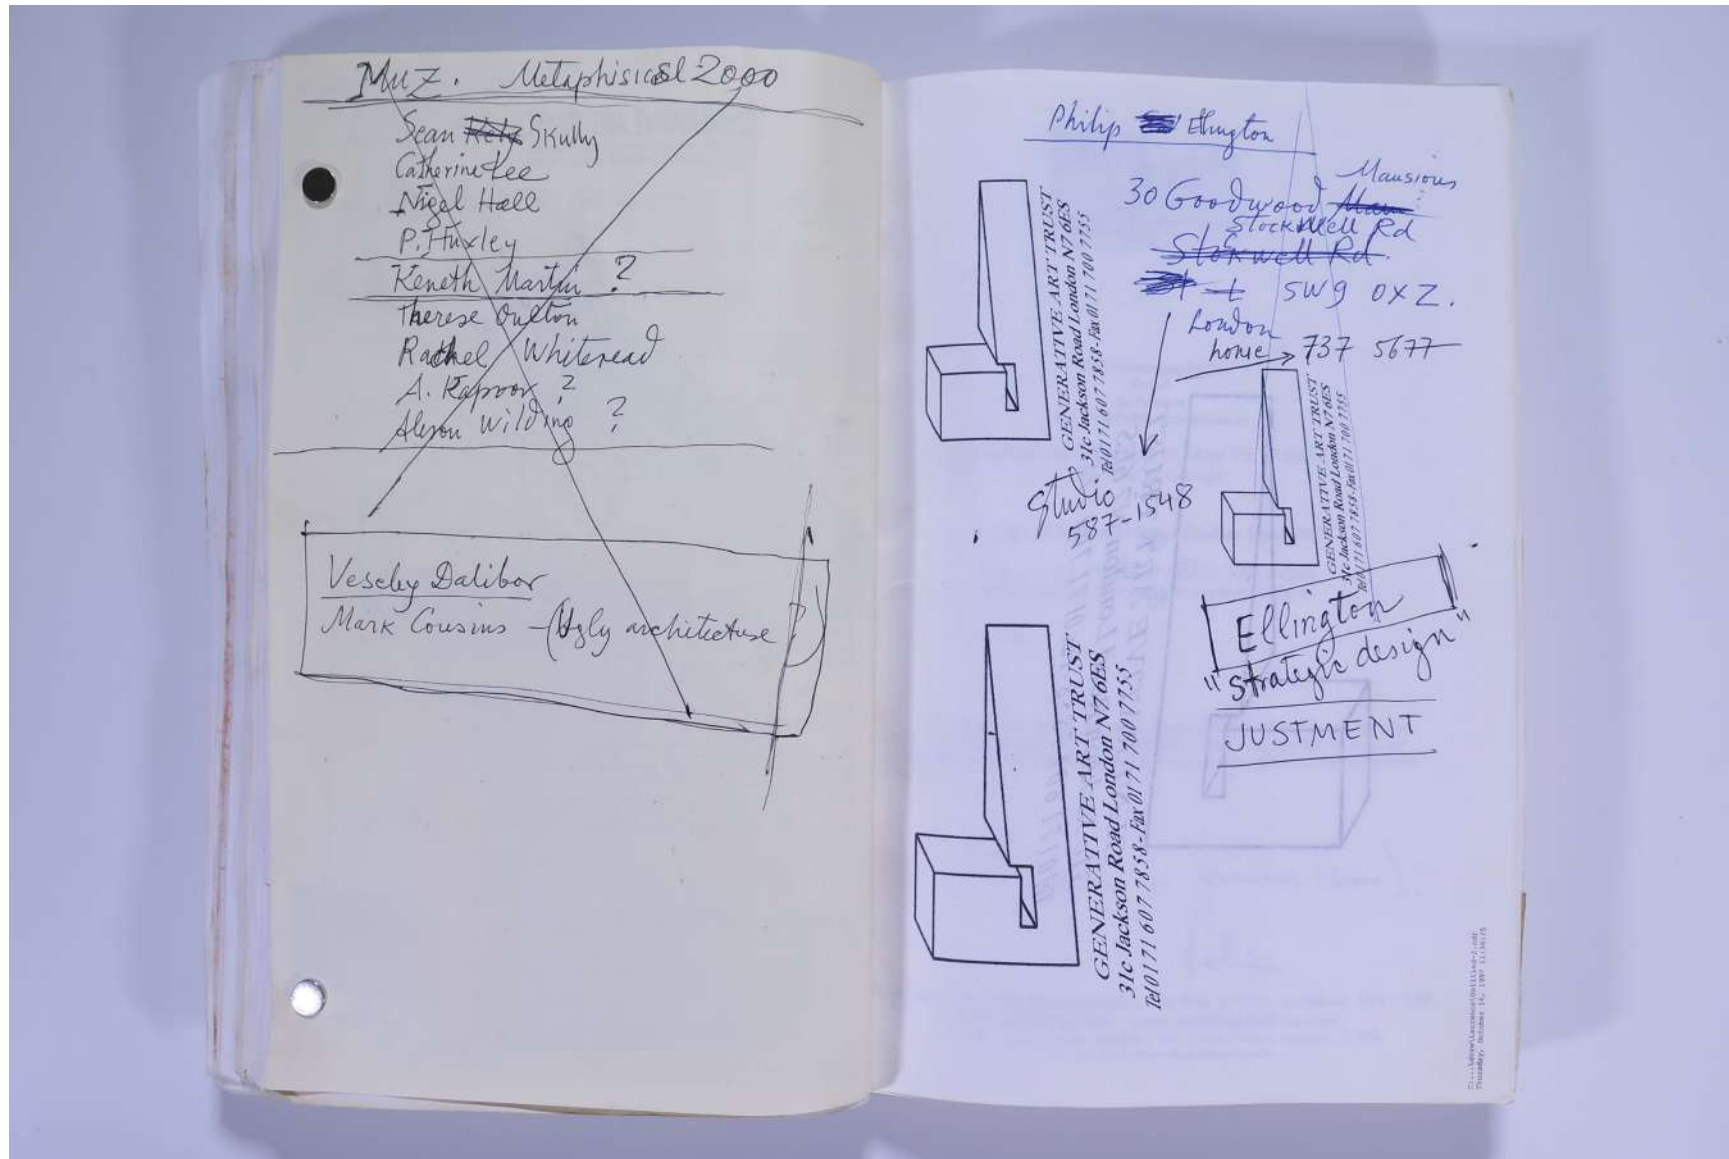 MuZ. Metaphisical 2000
Sean Skully
Catherine Lee
Nigel Hall
P. Huxley
Keneth Martin ?
Therese Oulton
Rachel Whiteread
A. Kapoor ?
Alison Wilding ?
Vesely Dalibor
Mark Cousins - (Ugly architecture ?)
Philip Ellington
30 Goodwood Mansions
Stockwell Rd
Stokwell Rd.
SW9 0XZ.
London
home → 737 5677
GENERATIVE ART TRUST
31c Jackson Road London N7 6ES
Tel 0171 607 7858 - Fax 0171 700 7755
Studio
587-1548
GENERATIVE ART TRUST
31c Jackson Road London N7 6ES
Tel 0171 607 7858 - Fax 0171 700 7755
Ellington
"strategic design"
JUSTMENT
GENERATIVE ART TRUST
31c Jackson Road London N7 6ES
Tel 0171 607 7858 - Fax 0171 700 7755
Thursday, October 16, 1997